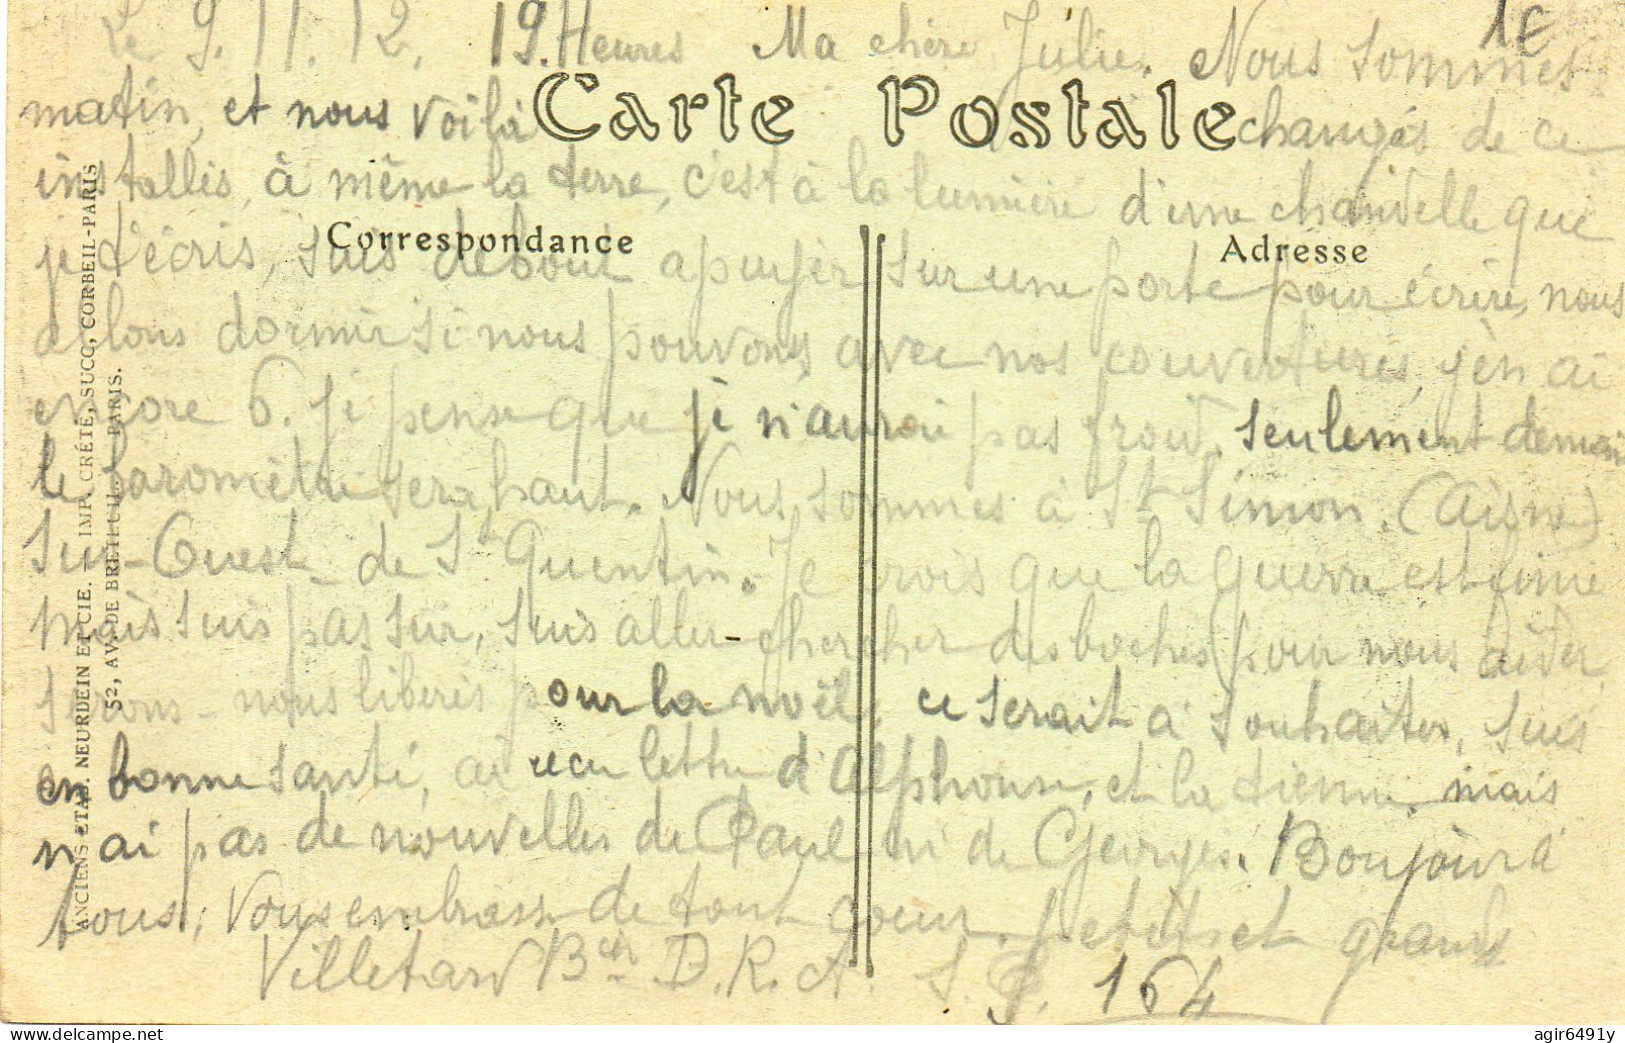 Le 9. 11. 12. 19. Heures Ma chère Julie. Nous sommes
1€
Carte Postale
changés de ce
matin, et nous voilà
installés, à même la terre, c'est à la lumière d'une chandelle que
Correspondance
Adresse
je t'écris, suis debout apuyér sur une porte pour écrire, nous
allons dormir si nous pouvons avec nos couvertures, j'en ai
encore 6. je pense que je n'aurai pas froid, seulement demain
le baromètre sera haut. Nous sommes à St Simon. (Aisne)
Sur-Ouest de St Quentin. Je crois que la guerre est finie
mais suis pas sur, suis aller chercher des boches pour nous aider,
serons-nous liberés pour la noël, ce serait à souhaiter, suis
en bonne santé, ai recu lettre d'Alphonse, et la tienne, mais
n'ai pas de nouvelles de Paul ni de Georges. Bonjour à
tous, Vous embrasse de tout coeur, petits et grands
Villetard Bier D.R.A. S.P. 164
ANCIENS ETAB. NEURDEIN ET CIE. — IMP. CRÉTÉ, SUCC, CORBEIL-PARIS
52, AV. DE BRETEUIL — PARIS.
agir6491y